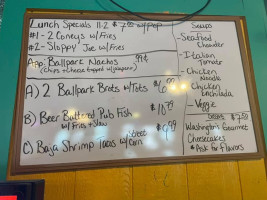 Lunch Specials 11-2 $7.00 w/pop
#1- 2 Coneys w/Fries
#2- Sloppy Joe w/Fries
App: Ballpark Nachos 99¢
(chips & cheese topped w/jalapeno)
A) 2 Ballpark Brats w/Tots $6.99
B) Beer Battered Pub Fish $10.99
w/ Fries & Slaw
C) Baja Shrimp Tacos w/ Street Corn $9.99
Soups
- Seafood
Chowder
- Italian
Tomato
- Chicken
Noodle
- Chicken
Enchilada
- Veggie
Desserts $7.50
Washington Gourmet
Cheesecakes
* Ask for flavors